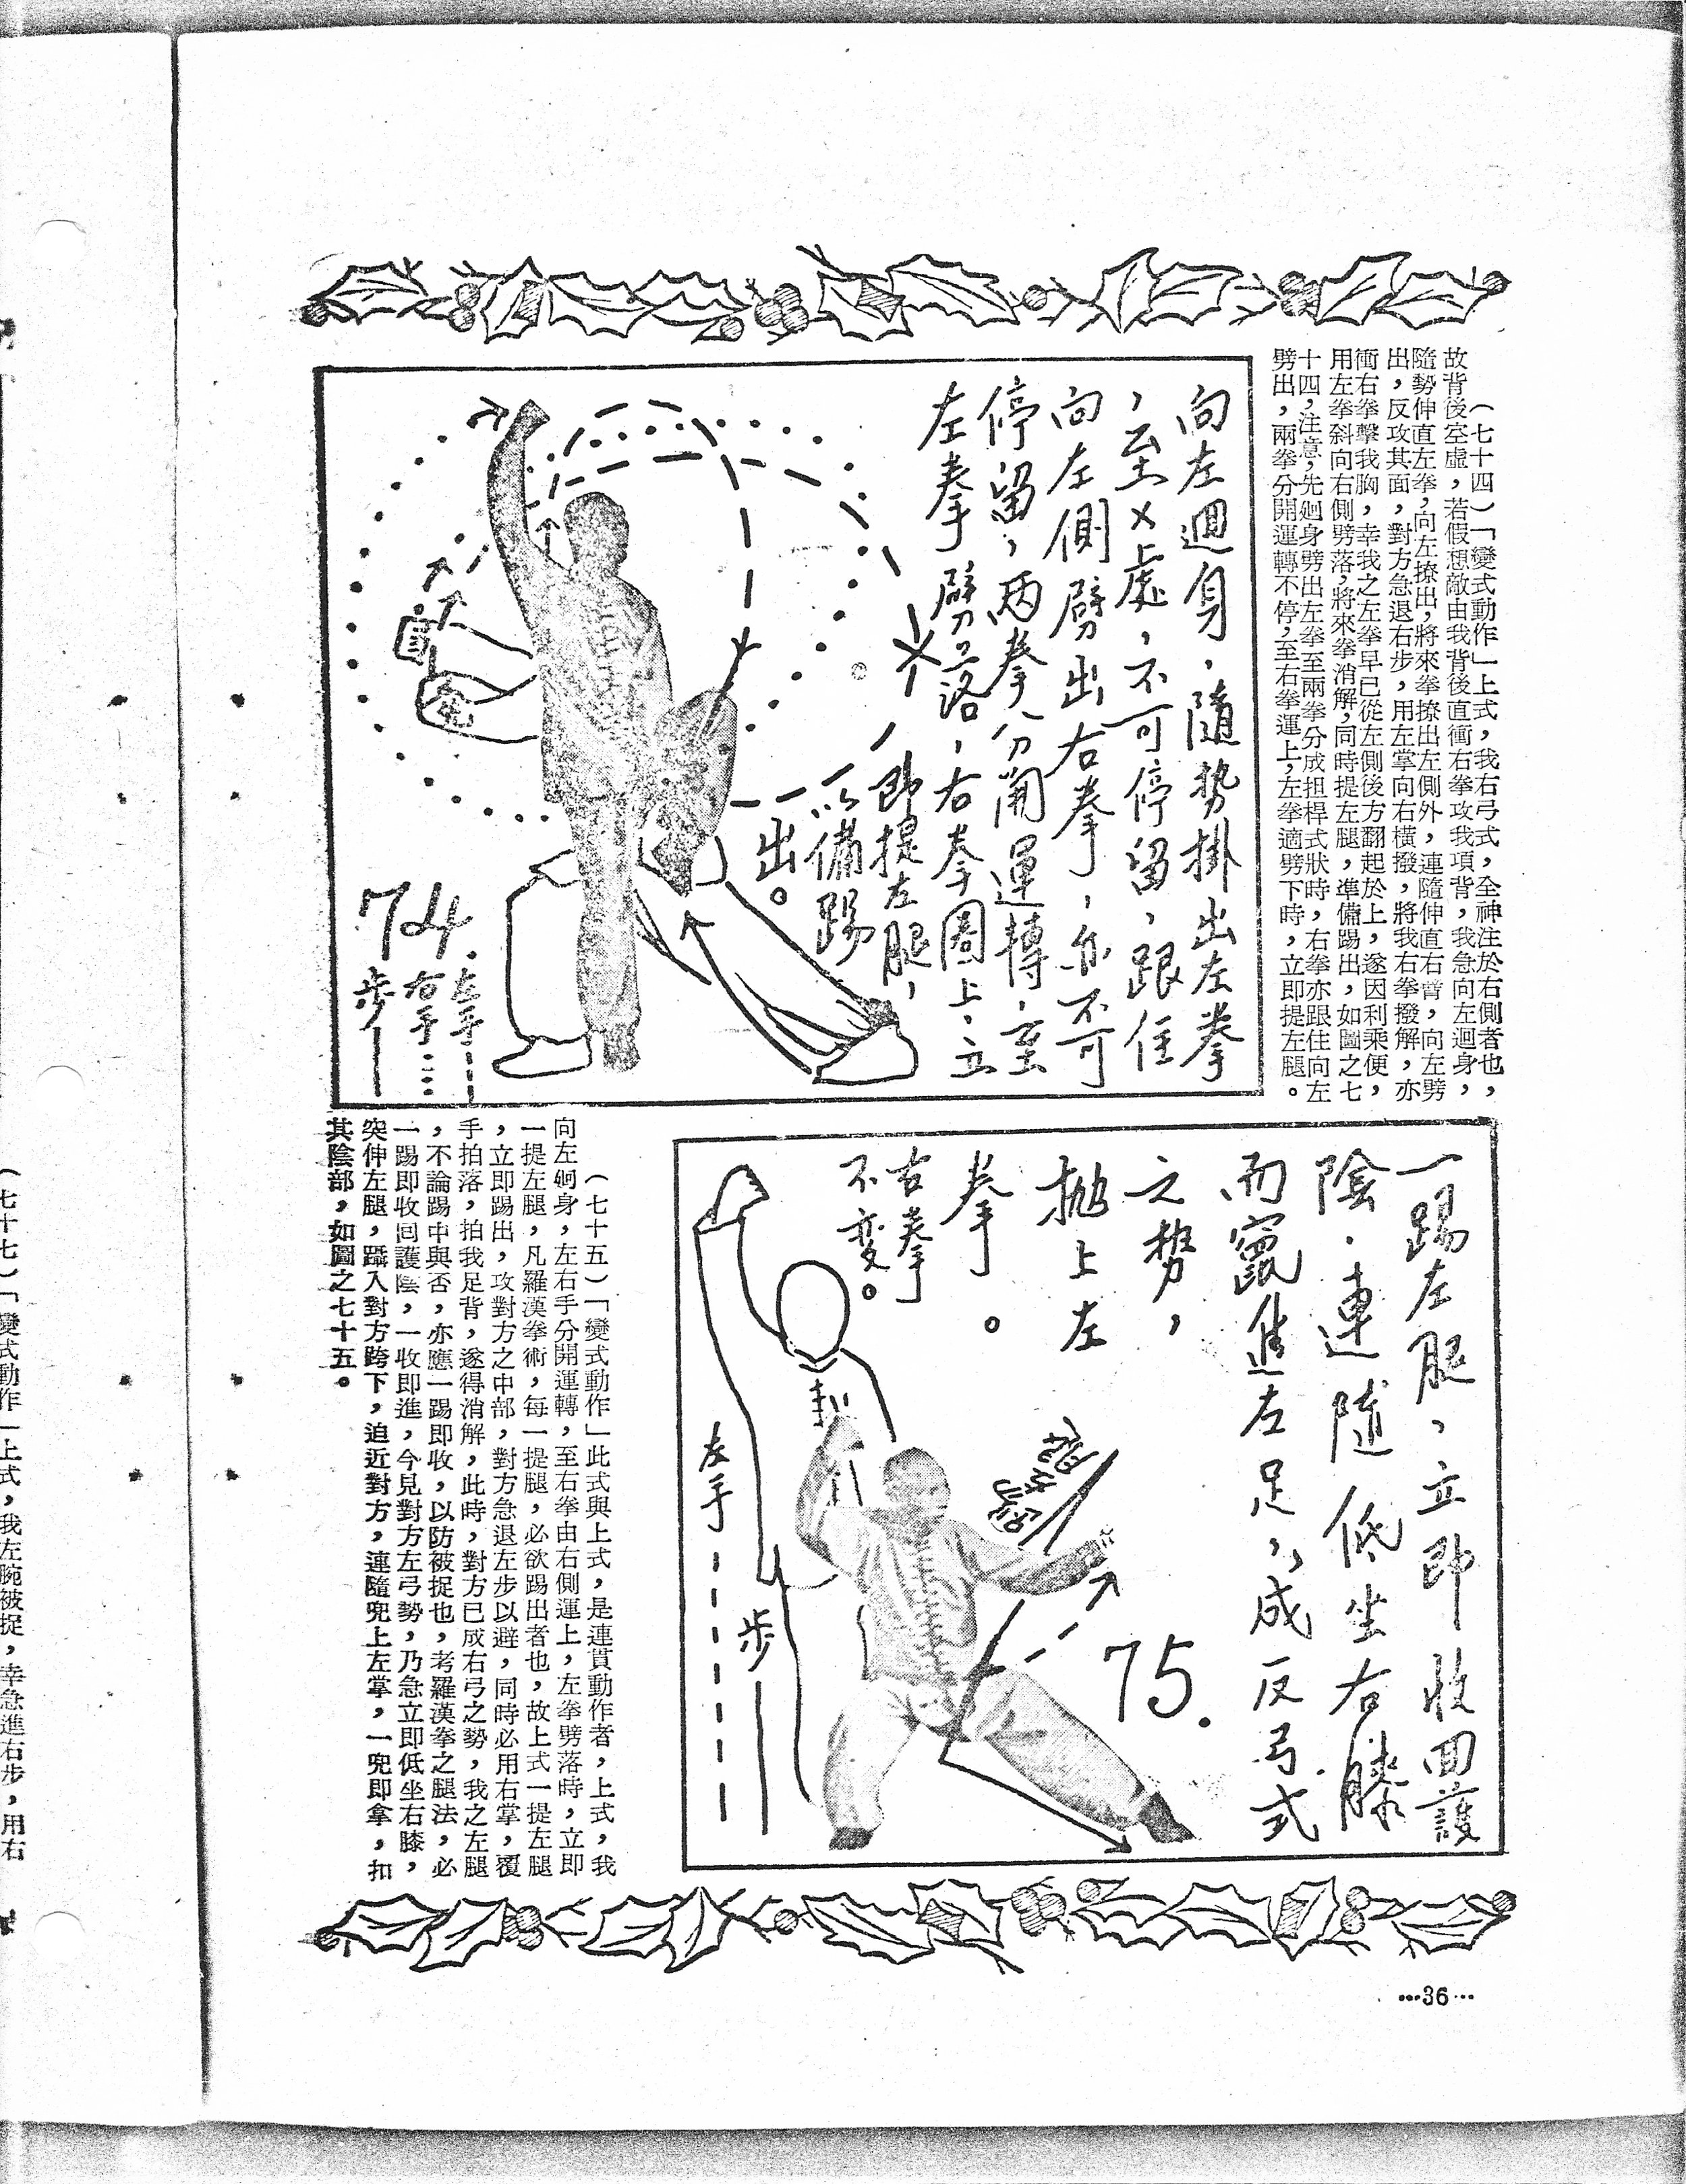 （七十四）「變式動作」上式，我右弓式，全神注於右側者也，
故背後空虛，若假想敵由我背後直衝右拳攻我項背，我急向左迴身，
隨勢伸直左拳，向左撩出，將來拳撩出左側外，連隨伸直右臂，向左劈
出，反攻其面，對方急退右步，用左掌向右橫撥，將我右拳撥解，亦
衝右拳擊我胸，幸我之左拳早已從左側後方翻起於上，遂因利乘便，
用左拳斜向右側劈落，將來拳消解，同時提左腿，準備踢出，如圖之七
十四，注意，先迴身劈出左拳至兩拳分成担桿式狀時，右拳亦跟住向左
劈出，兩拳分開運轉不停，至右拳運上，左拳適劈下時，立即提左腿。
向左迴身，隨勢掛出左拳
，至乂上處，不可停留，跟住
向左側劈出右拳，亦不可
停留，兩拳分開運轉，至
左拳劈落，右拳圈上，立
即提左腿，
以備踢
出。
74.
左手
右手
步
一踢左腿，立即收回護
陰，連隨低坐右膝
而竄進左足，成反弓式
之勢，
拋上左
拳。
右拳
不变。
75.
左手
步
（七十五）「變式動作」此式與上式，是連貫動作者，上式，我
向左迴身，左右手分開運轉，至右拳由右側運上，左拳劈落時，立即
一提左腿，凡羅漢拳術，每一提腿，必欲踢出者也，故上式一提左腿
，立即踢出，攻對方之中部，對方急退左步以避，同時必用右掌，覆
手拍落，拍我足背，遂得消解，此時，對方已成右弓之勢，我之左腿
，不論踢中與否，亦應一踢即收，以防被捉也，考羅漢拳之腿法，必
一踢即收回護陰，一收即進，今見對方左弓勢，乃急立即低坐右膝，
突伸左腿，蹋入對方跨下，迫近對方，連隨兜上左掌，一兜即拿，扣
其陰部，如圖之七十五。
…36…
（七十七）「變式動作」上式，我左腕被捉，幸急進右步，用右